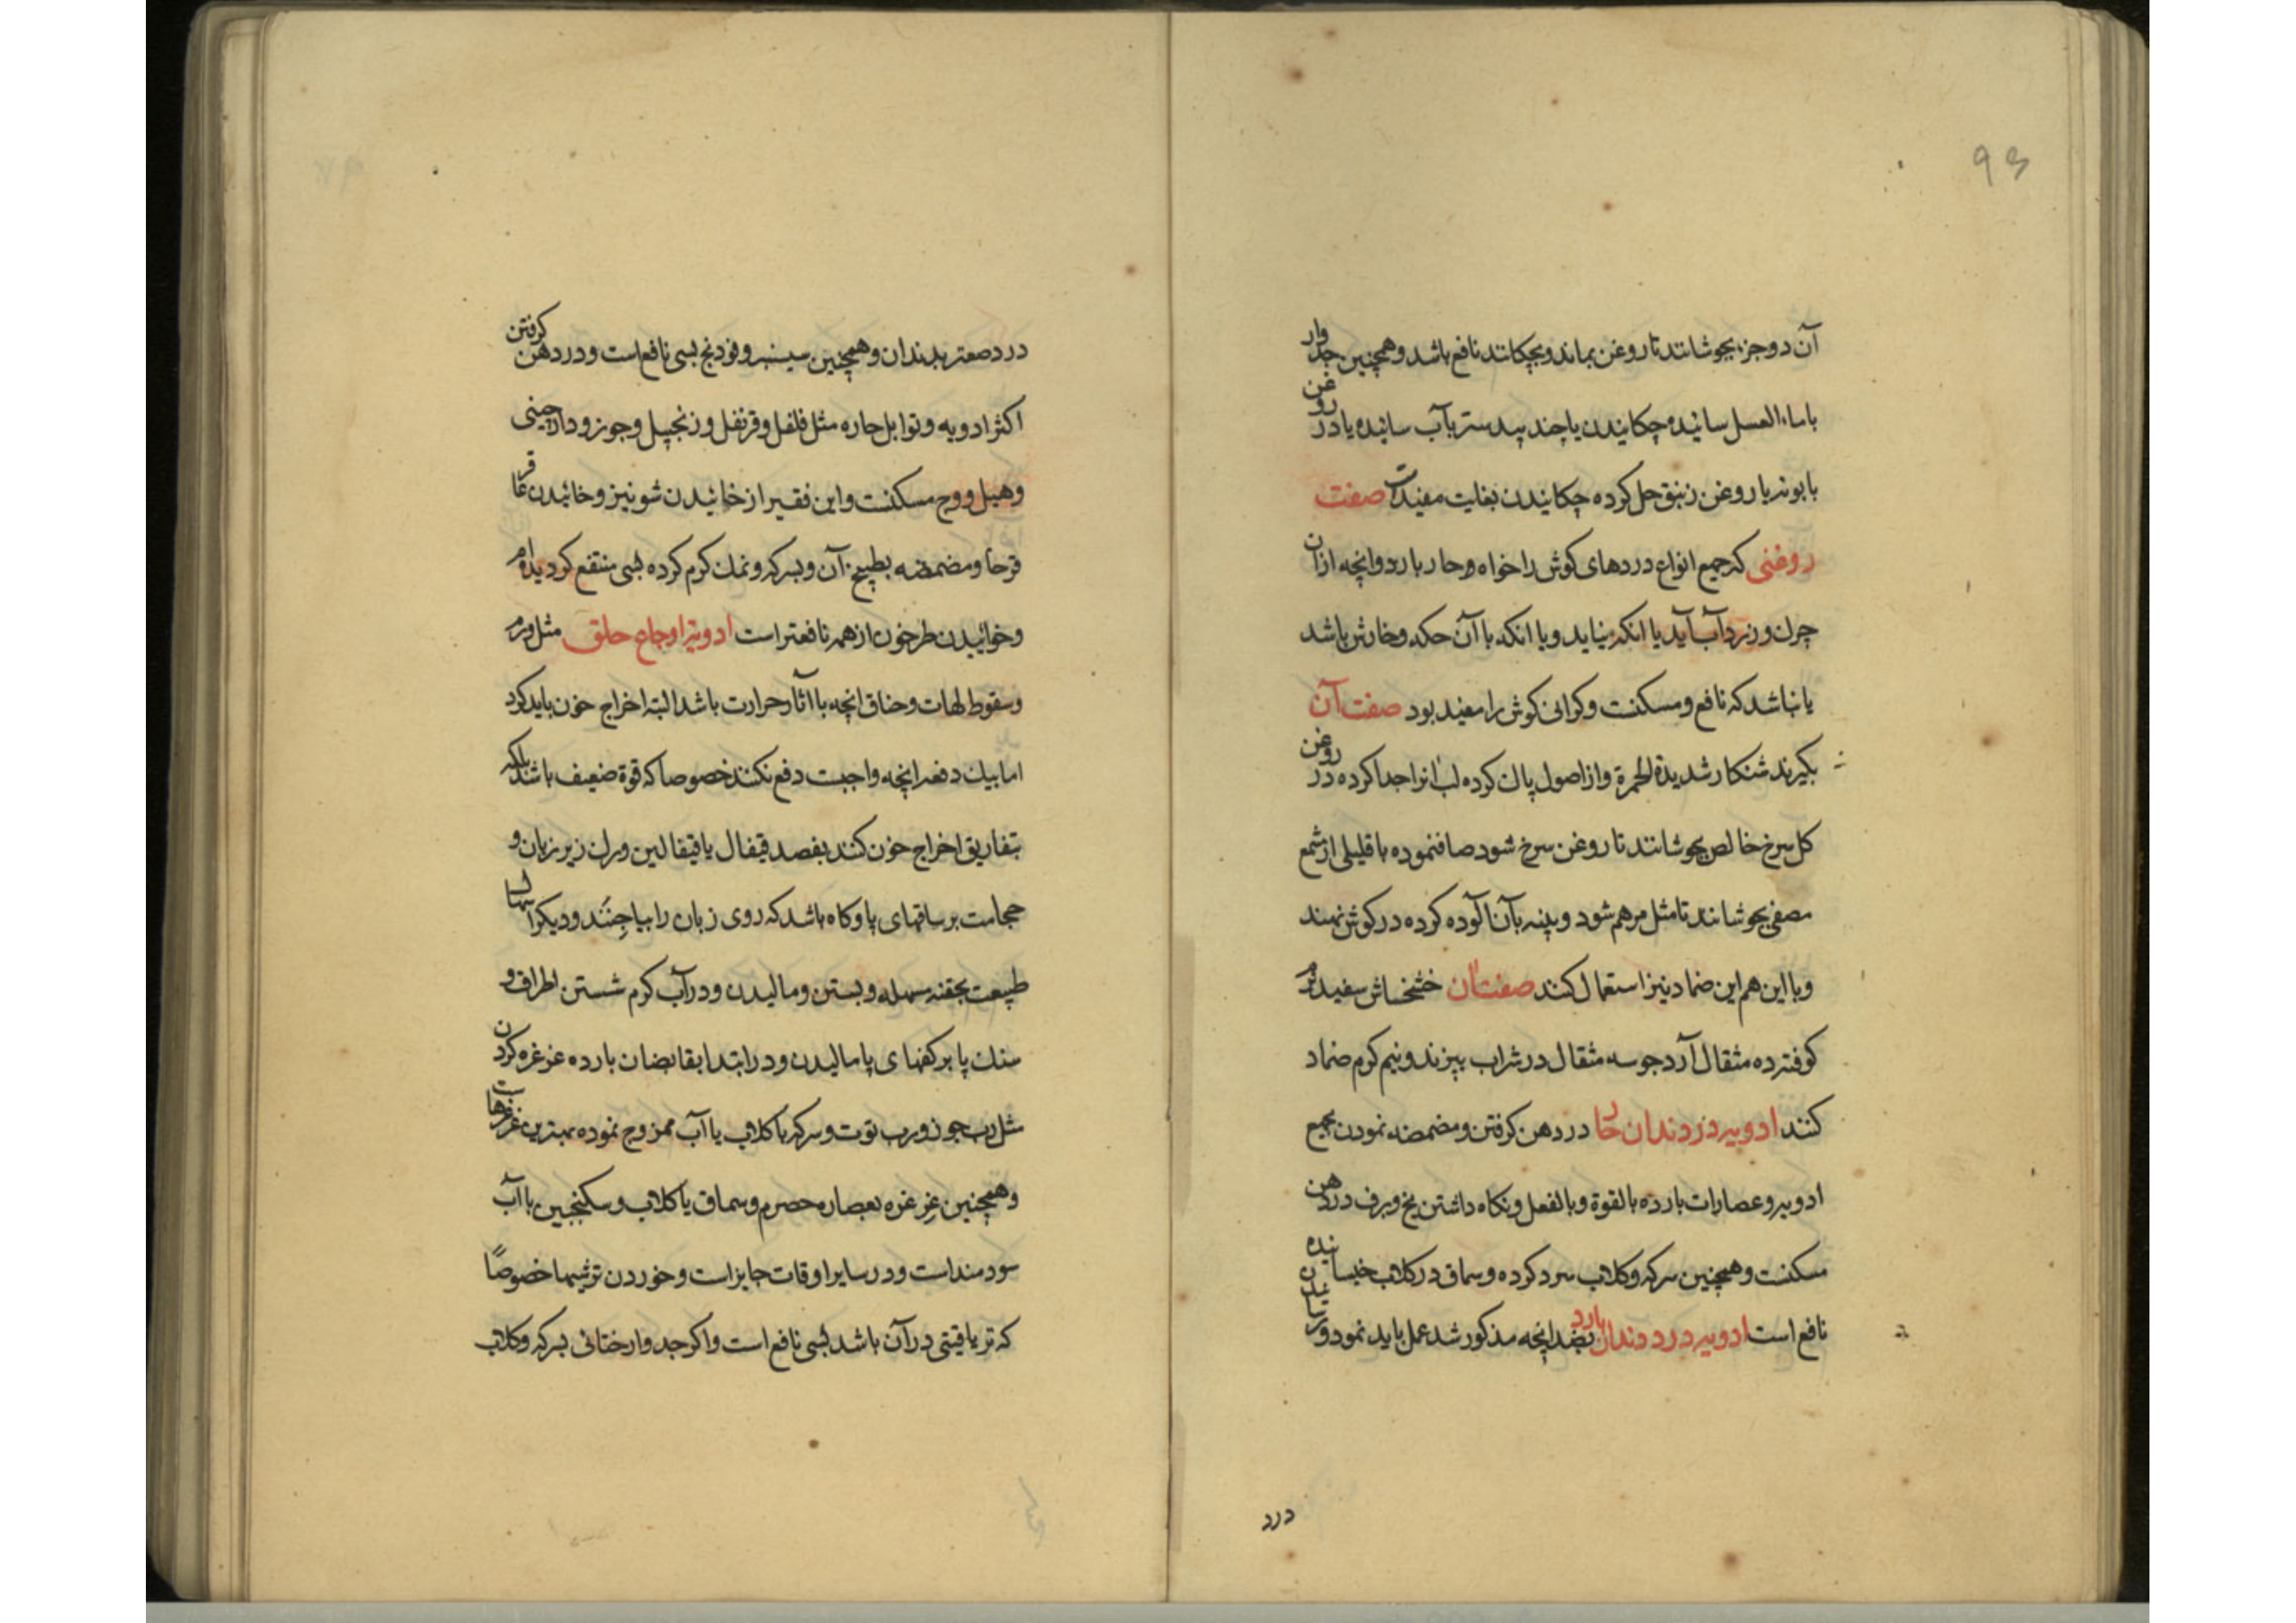 ۹۳
آن دو جزء بجوشانند تا روغن بماند و بچکانند نافع باشد و همچنین جدوار
با ماء العسل سائیده چکانیدن یا جند بیدستر بآب سائیده یا در روغن
بابونه یا روغن زنبق حل کرده چکانیدن بغایت مفیدست صفت
روغنی که جمیع انواع دردهای کوش را خواه حار بارد وانچه از آن
چرک و زرداب آید یا انکه نیاید و یا انکه با آن حکه و خارش باشد
یا نباشد که نافع و مسکنست و کرانی کوش را مفید بود صفت آن
بکیرند شنکار شدیدة الحمرة و از اصول پاک کرده لب انرا جدا کرده در روغن
کل سرخ خالص بجوشانند تا روغن سرخ شود صاف نموده با قلیلی از شمع
مصفی بجوشانند تا مثل مرهم شود و پنبه بآن آلوده کرده در کوش نهند
و با این هم این ضماد نیز استعمال کنند صفت آن خشخاش سفید نرم
کوفته ده مثقال آرد جو سه مثقال در شراب بپزند و نیم کرم ضماد
کنند ادویه درد دندان حار در دهن کرفتن و مضمضه نمودن بجمیع
ادویه و عصارات بارده بالقوة و بالفعل و نکاه داشتن یخ و برف در دهن
مسکنست و همچنین سرکه و کلاب سرد کرده و سماق در کلاب خیسانیده
نافع است ادویه درد دندان بارد بضد انچه مذکور شد عمل باید نمود و
درد
درد صعتر بدندان و همچنین سیسنبر و فودنج بسی نافع است و در دهن کرفتن
اکثر ادویه و توابل حاره مثل فلفل و قرنفل و زنجبیل و جوز و دارچینی
و هیل و وج مسکنست و این فقیر از خائیدن شونیز و خائیدن عاقر
قرحا و مضمضه بطبیخ آن و بسرکه و نمک کرم کرده بسی منتفع کردیده ام
و خوائیدن طرخون از همه نافعتر است ادویه اوجاع حلق مثل ورم
و سقوط لهات و خناق انچه با اثار حرارت باشد البته اخراج خون باید کرد
اما بیک دفعه انچه واجبست دفع نکنند خصوصا که قوة ضعیف باشد بلکه
بتفاریق اخراج خون کنند بفصد قیفال یا قیفالین و رک زیر زبان و
حجامت بر ساقهای پا و کاه باشد که روی زبان را بیاجنند و دیکر اسهال
طبیعت بحقنه مسهله و بستن و مالیدن و در آب کرم شستن اطراف و
سنک پا بر کفهای پا مالیدن و در ابتدا بقابضان بارده غرغره کردن
مثل رب جوز و رب توت و سرکه با کلاب یا آب ممزوج نموده بهترین غرغرهاست
و همچنین غرغره بعصاره حصرم و سماق یا کلاب و سکنجبین با آب
سودمند است و در سایر اوقات جایز است و خوردن ترشیها خصوصاً
که تریاقیتی در آن باشد بسی نافع است و اکر جدوار ختائی بسرکه و کلاب